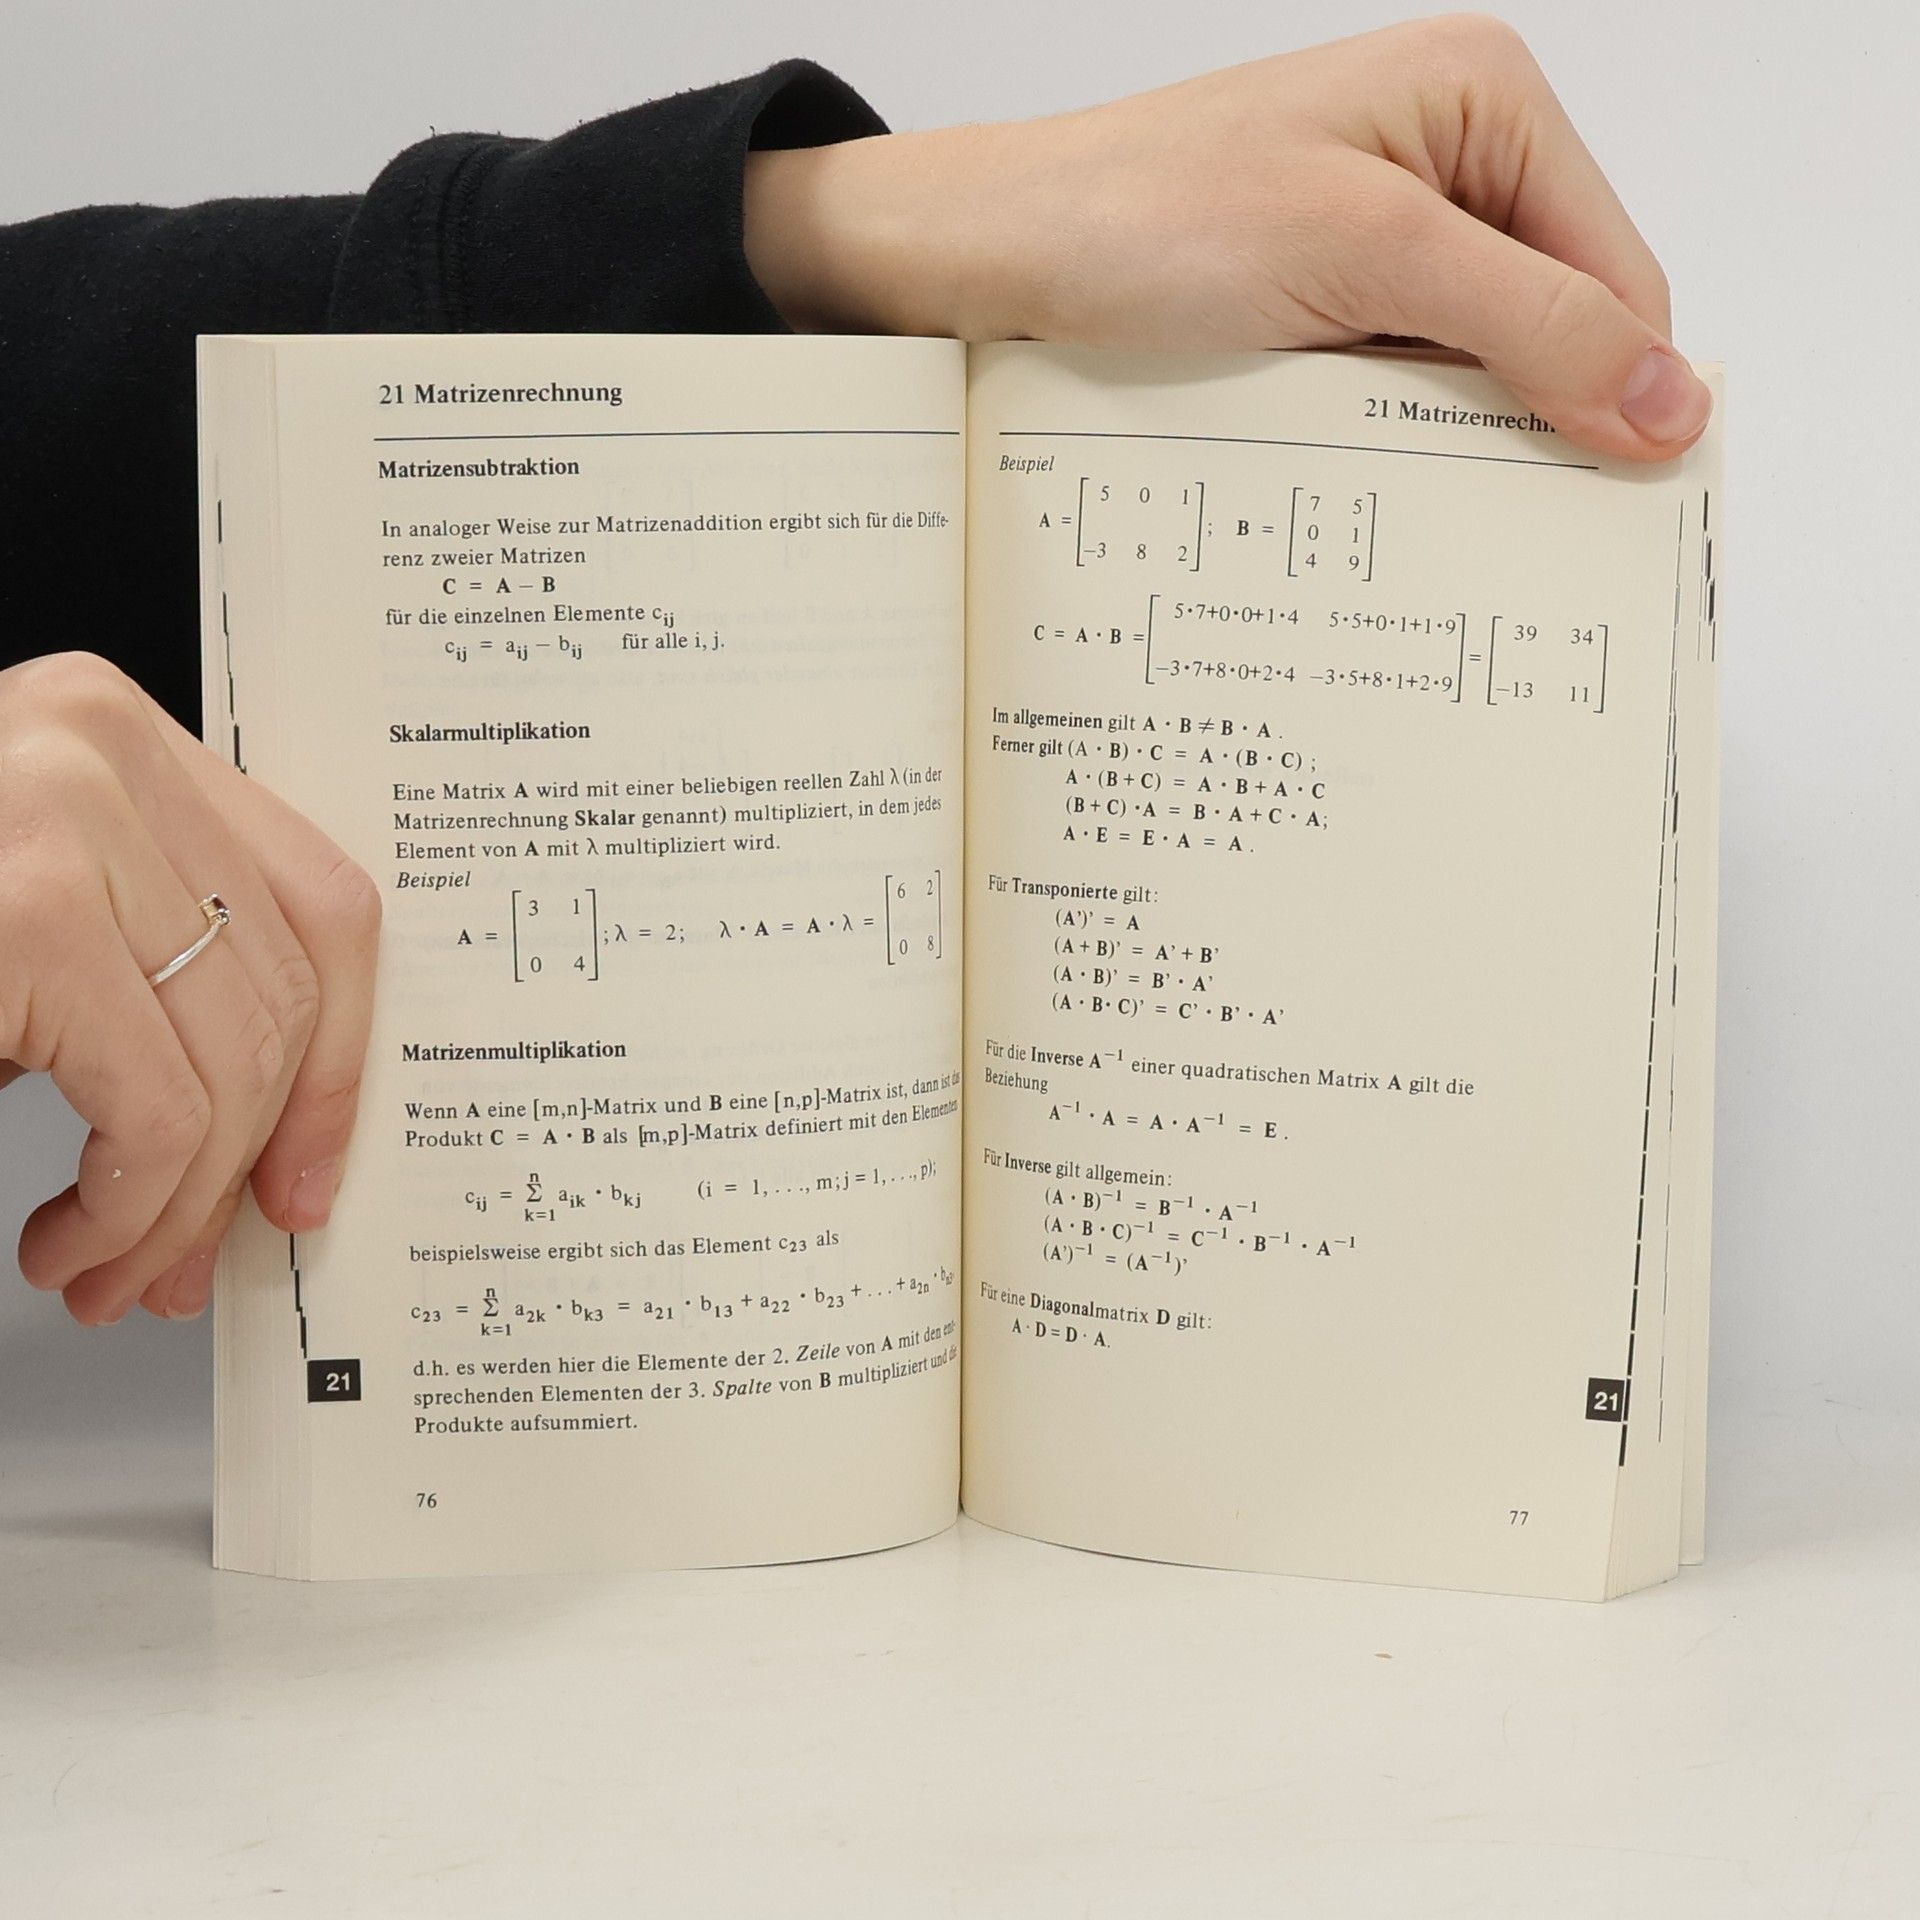 21 Matrizenrechnung
Matrizensubtraktion
In analoger Weise zur Matrizenaddition ergibt sich für die Diffe-
renz zweier Matrizen
C = A − B
für die einzelnen Elemente cij
cij = aij − bij für alle i, j.
Skalarmultiplikation
Eine Matrix A wird mit einer beliebigen reellen Zahl λ (in der
Matrizenrechnung Skalar genannt) multipliziert, in dem jedes
Element von A mit λ multipliziert wird.
Beispiel
3 1 6 2
A = ; λ = 2; λ · A = A · λ =
0 4 0 8
Matrizenmultiplikation
Wenn A eine [m,n]-Matrix und B eine [n,p]-Matrix ist, dann ist das
Produkt C = A · B als [m,p]-Matrix definiert mit den Elementen
n
cij = Σ aik · bkj (i = 1, . . ., m; j = 1, . . ., p);
k=1
beispielsweise ergibt sich das Element c23 als
n
c23 = Σ a2k · bk3 = a21 · b13 + a22 · b23 + . . . + a2n · bn3,
k=1
d.h. es werden hier die Elemente der 2. Zeile von A mit den ent-
sprechenden Elementen der 3. Spalte von B multipliziert und die
Produkte aufsummiert.
21
76
21 Matrizenrechn
Beispiel
5 0 1 7 5
A = ; B = 0 1
−3 8 2 4 9
5·7+0·0+1·4 5·5+0·1+1·9 39 34
C = A · B = =
−3·7+8·0+2·4 −3·5+8·1+2·9 −13 11
Im allgemeinen gilt A · B ≠ B · A .
Ferner gilt (A · B) · C = A · (B · C) ;
A · (B + C) = A · B + A · C
(B + C) · A = B · A + C · A;
A · E = E · A = A .
Für Transponierte gilt:
(A’)’ = A
(A + B)’ = A’ + B’
(A · B)’ = B’ · A’
(A · B · C)’ = C’ · B’ · A’
Für die Inverse A⁻¹ einer quadratischen Matrix A gilt die
Beziehung
A⁻¹ · A = A · A⁻¹ = E .
Für Inverse gilt allgemein:
(A · B)⁻¹ = B⁻¹ · A⁻¹
(A · B · C)⁻¹ = C⁻¹ · B⁻¹ · A⁻¹
(A’)⁻¹ = (A⁻¹)’
Für eine Diagonalmatrix D gilt:
A · D = D · A.
21
77